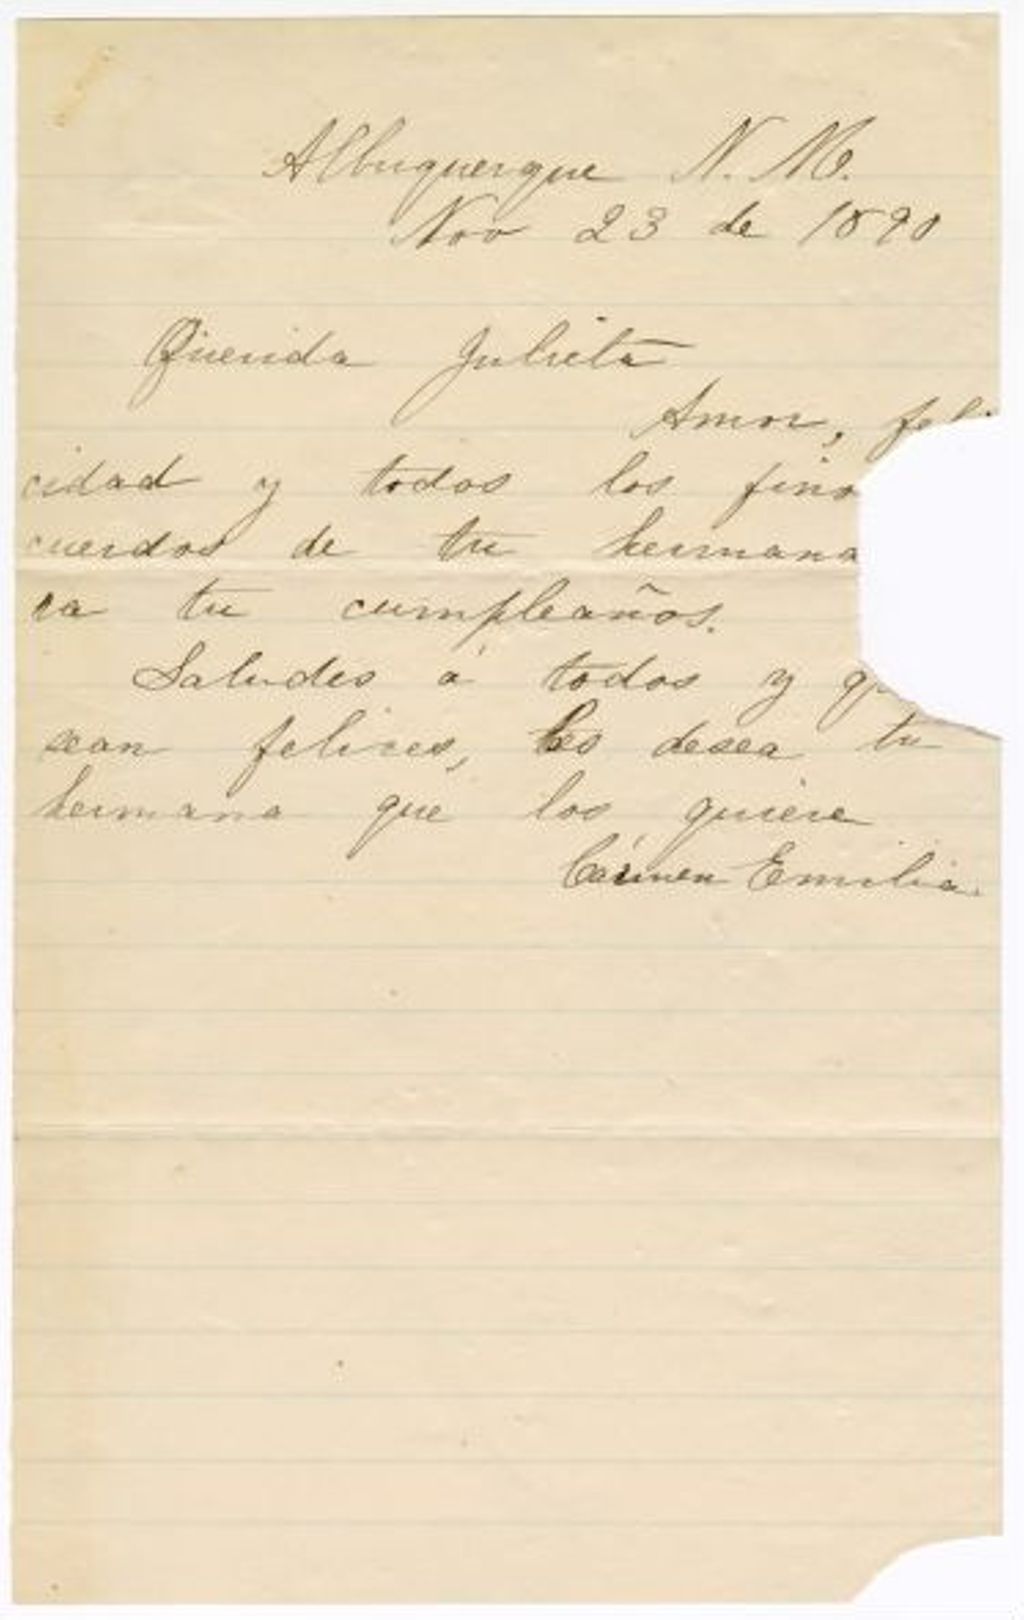 Albuquerque N. M.
Nov 23 de 1890
Querida Julieta
Amor, feli
cidad y todos los fino
cuerdos de tu hermana
ra tu cumpleaños.
Saludes á todos y qu
sean felices, les desea tu
hermana que los quiere
Cármen Emilia.